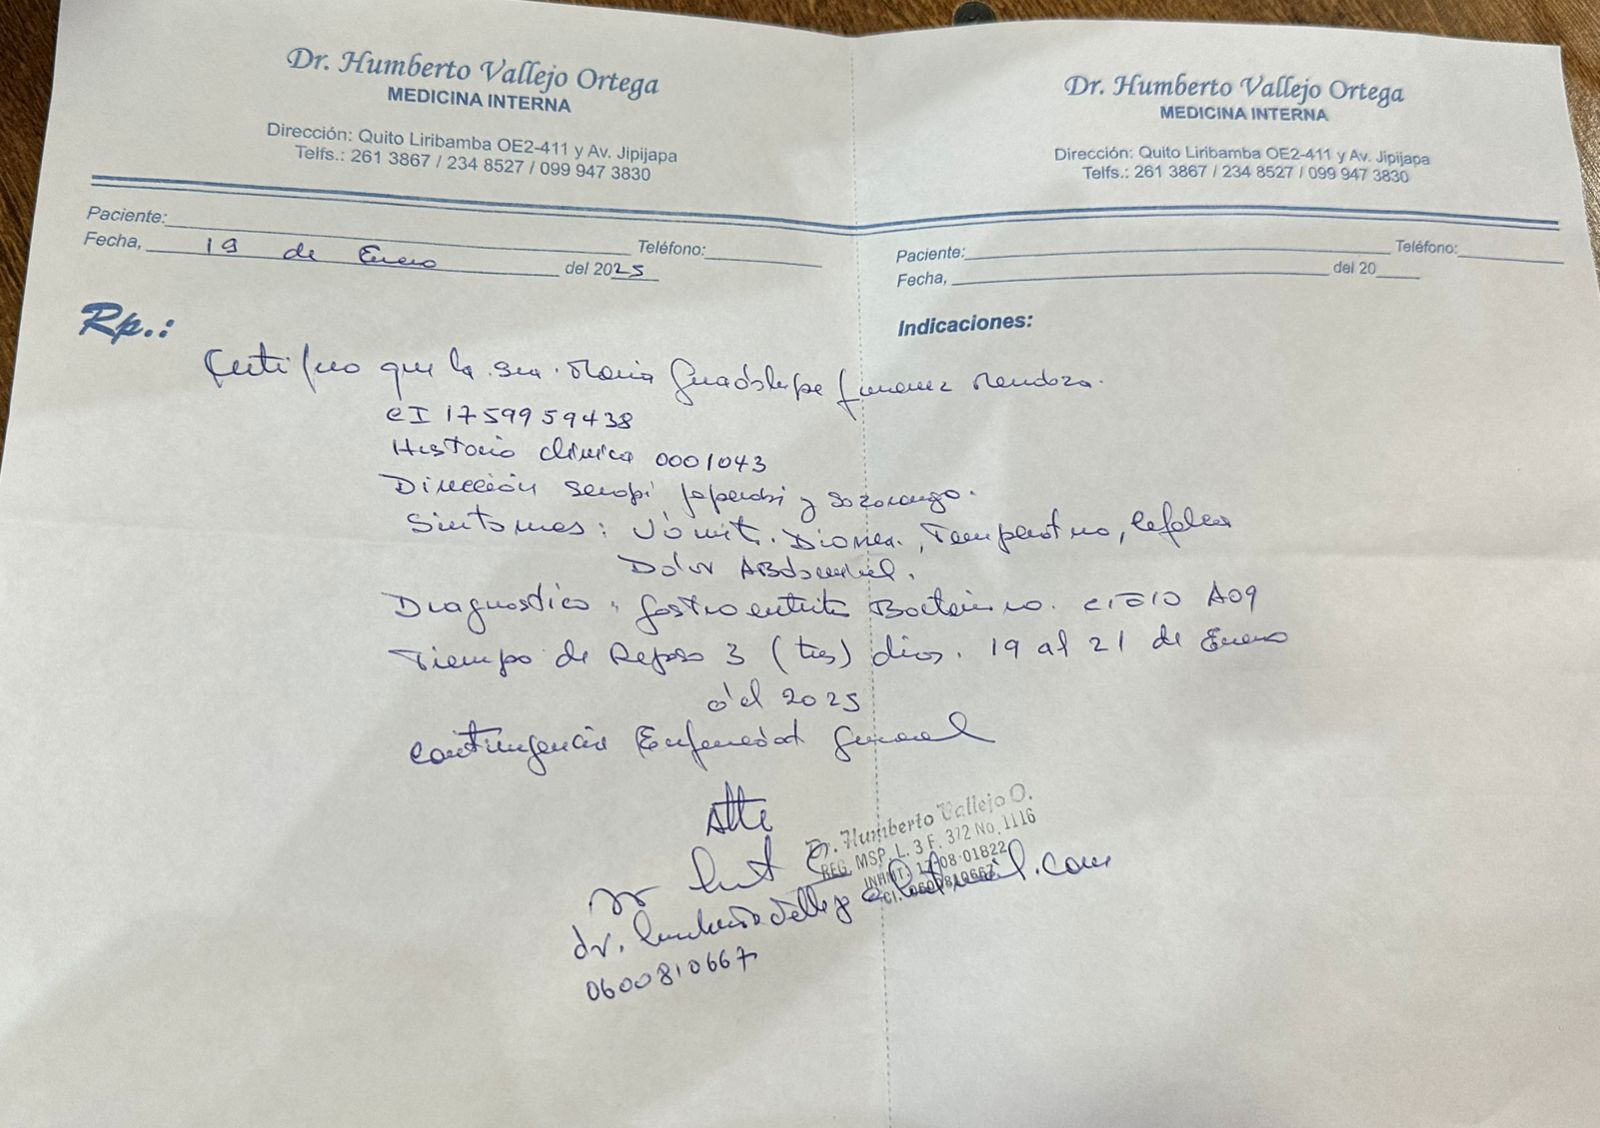 Dr. Humberto Vallejo Ortega
MEDICINA INTERNA
Dirección: Quito Liribamba OE2-411 y Av. Jipijapa
Telfs.: 261 3867 / 234 8527 / 099 947 3830
Paciente: Teléfono:
Fecha, 19 de Enero del 2025
Rp.:
Certifico que la sra. Maria Guadalupe Jimenez Mendoza.
CI 1759959438
Historia clinica 0001043
Dirección y Sozoranga.
Sintomas: Vómito. Diarrea., Temperatura, Cefalea
Dolor Abdominal.
Diagnostico: Gastroenteritis Bacteriana. CIE10 A09
Tiempo de Reposo 3 (tres) dias. 19 al 21 de Enero
del 2025
Contingencia Enfermedad General
Atte
Dr. Humberto Vallejo O.
REG. MSP. L. 3 F. 372 No. 1116
INHMT. 17-08-01822
CI. 0600810667
dr.humbertovallejo@hotmail.com
0600810667
Dr. Humberto Vallejo Ortega
MEDICINA INTERNA
Dirección: Quito Liribamba OE2-411 y Av. Jipijapa
Telfs.: 261 3867 / 234 8527 / 099 947 3830
Paciente: Teléfono:
Fecha, del 20
Indicaciones: